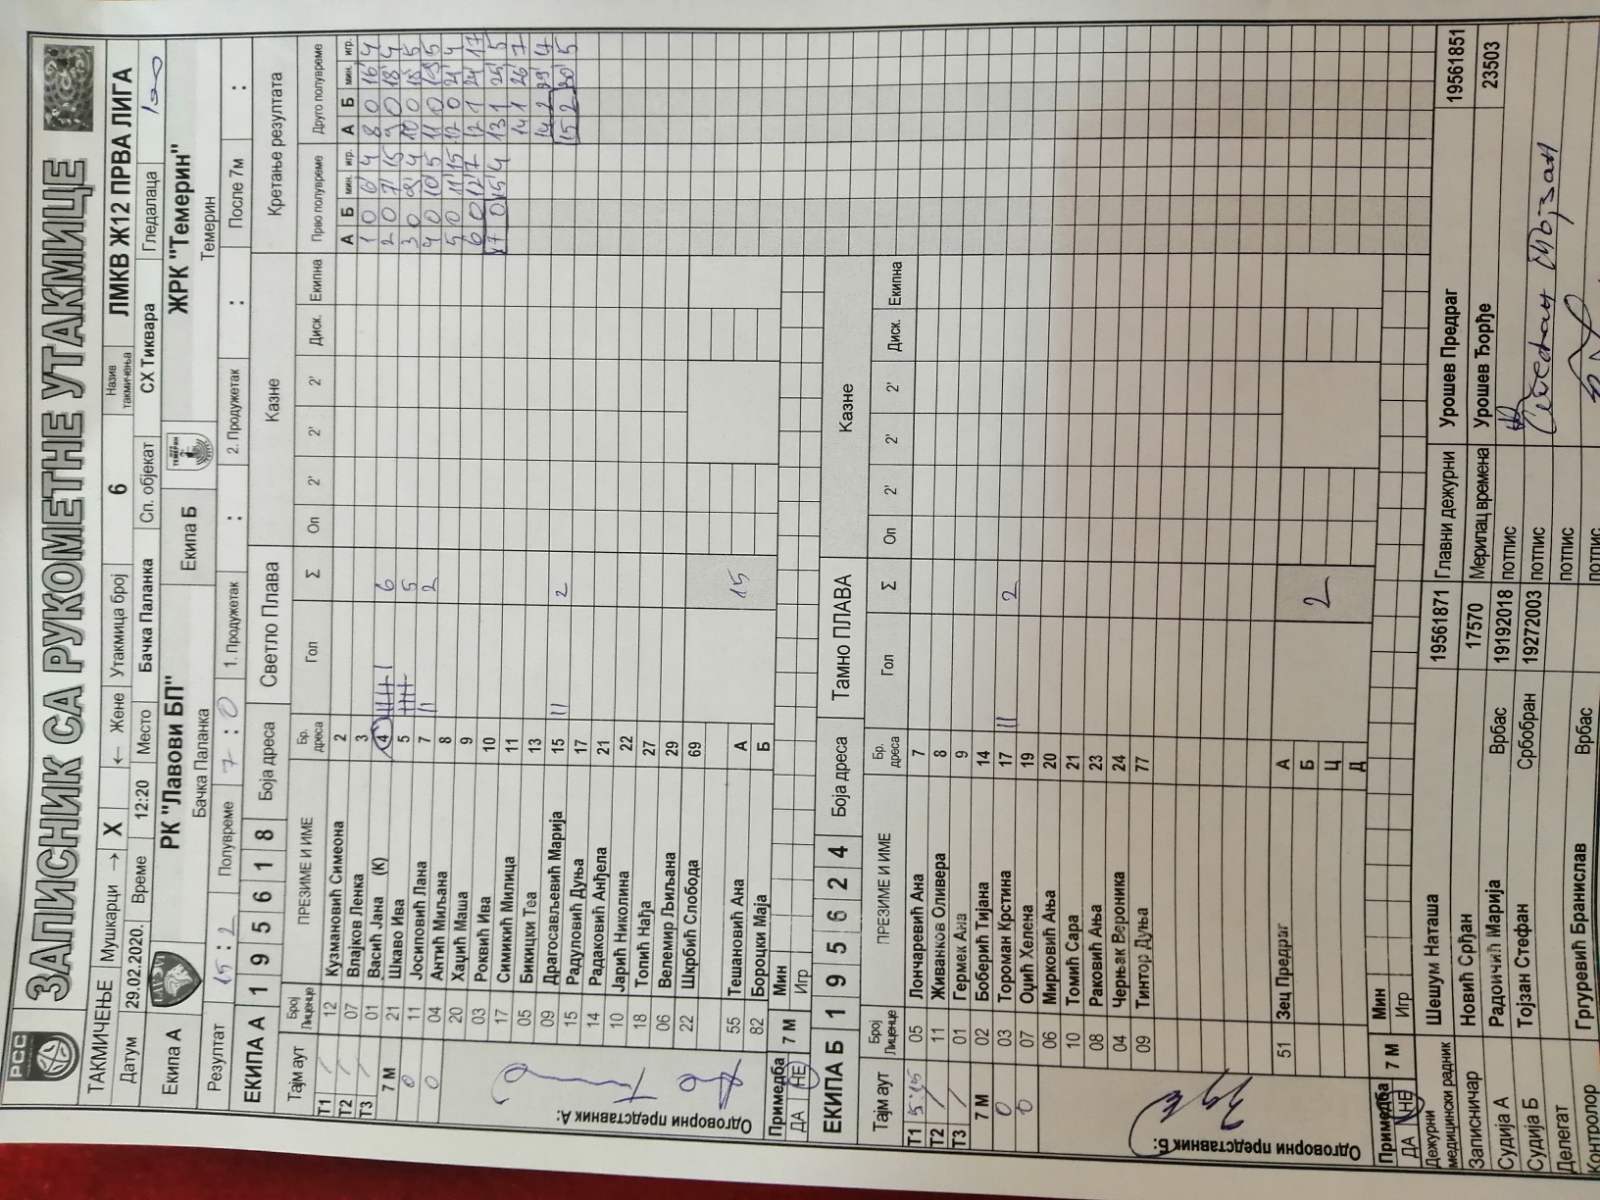 РСС
ЗАПИСНИК СА РУКОМЕТНЕ УТАКМИЦЕ
ТАКМИЧЕЊЕ Мушкарци → X ← Жене Утакмица број 6 Назив такмичења ЛМКВ Ж12 ПРВА ЛИГА
Датум 29.02.2020. Време 12:20 Место Бачка Паланка Сп. објекат СХ Тиквара Гледалаца 100
Екипа А РК "Лавови БП" Екипа Б ЖРК "Темерин"
Бачка Паланка Темерин
Резултат 15 : 2 Полувреме 7 : 0 1. Продужетак : 2. Продужетак : После 7м :
ЕКИПА А 1 9 5 6 1 8 Боја дреса Светло Плава Казне Кретање резултата
Тајм аут Број Лиценце ПРЕЗИМЕ И ИМЕ Бр. дреса Гол Σ Оп 2' 2' 2' Диск. Екипна Прво полувреме Друго полувреме
А Б мин. игр. А Б мин. игр.
T1 / 12 Кузмановић Симеона 2 1 0 6' 4 8 0 16' 4
T2 / 07 Влајков Ленка 3 2 0 7' 15 9 0 18' 4
T3 / 01 Васић Јана (К) 4 6 3 0 9' 4 10 0 18' 5
7 М 21 Шкаво Ива 5 5 4 0 10' 5 11 0 19' 5
0 11 Јосиповић Лана 7 2 5 0 11' 15 12 0 21' 4
0 04 Антић Миљана 8 6 0 12' 7 12 1 24' 17
20 Хаџић Маша 9 7 0 15' 4 13 1 25' 5
03 Роквић Ива 10 14 1 26' 7
17 Симикић Милица 11 14 2 29'
05 Бикицки Теа 13 15 2 30' 5
09 Драгосављевић Марија 15 II 2
15 Радуловић Дуња 17
14 Радаковић Анђела 21
10 Јарић Николина 22
18 Топић Нађа 27
06 Велемир Љиљана 29
22 Шкрбић Слобода 69
55 Тешановић Ана А 15
82 Бороцки Маја Б
Одговорни представник А:
Примедба 7 М Мин
ДА НЕ Игр
ЕКИПА Б 1 9 5 6 2 4 Боја дреса Тамно ПЛАВА Казне
Тајм аут Број Лиценце ПРЕЗИМЕ И ИМЕ Бр. дреса Гол Σ Оп 2' 2' 2' Диск. Екипна
T1 5:15 05 Лончаревић Ана 7
T2 / 11 Живанков Оливера 8
T3 / 01 Гермех Ана 9
7 М 02 Боберић Тијана 14
0 03 Тороман Крстина 17 II 2
0 07 Оџић Хелена 19
06 Мирковић Ања 20
10 Томић Сара 21
08 Раковић Ања 23
04 Черњак Вероника 24
09 Тинтор Дуња 77
51 Зец Предраг А
Б 2
Ц
Д
Одговорни представник Б:
Примедба 7 М Мин
ДА НЕ Игр
Дежурни медицински радник Шешум Наташа 19561871 Главни дежурни Урошев Предраг 19561851
Записничар Новић Срђан 17570 Мерилац времена Урошев Ђорђе 23503
Судија А Радоичић Марија Врбас 19192018 потпис
Судија Б Тојзан Стефан Србобран 19272003 потпис Стефан Тојзан
Делегат потпис
Контролор Гргуревић Бранислав Врбас потпис